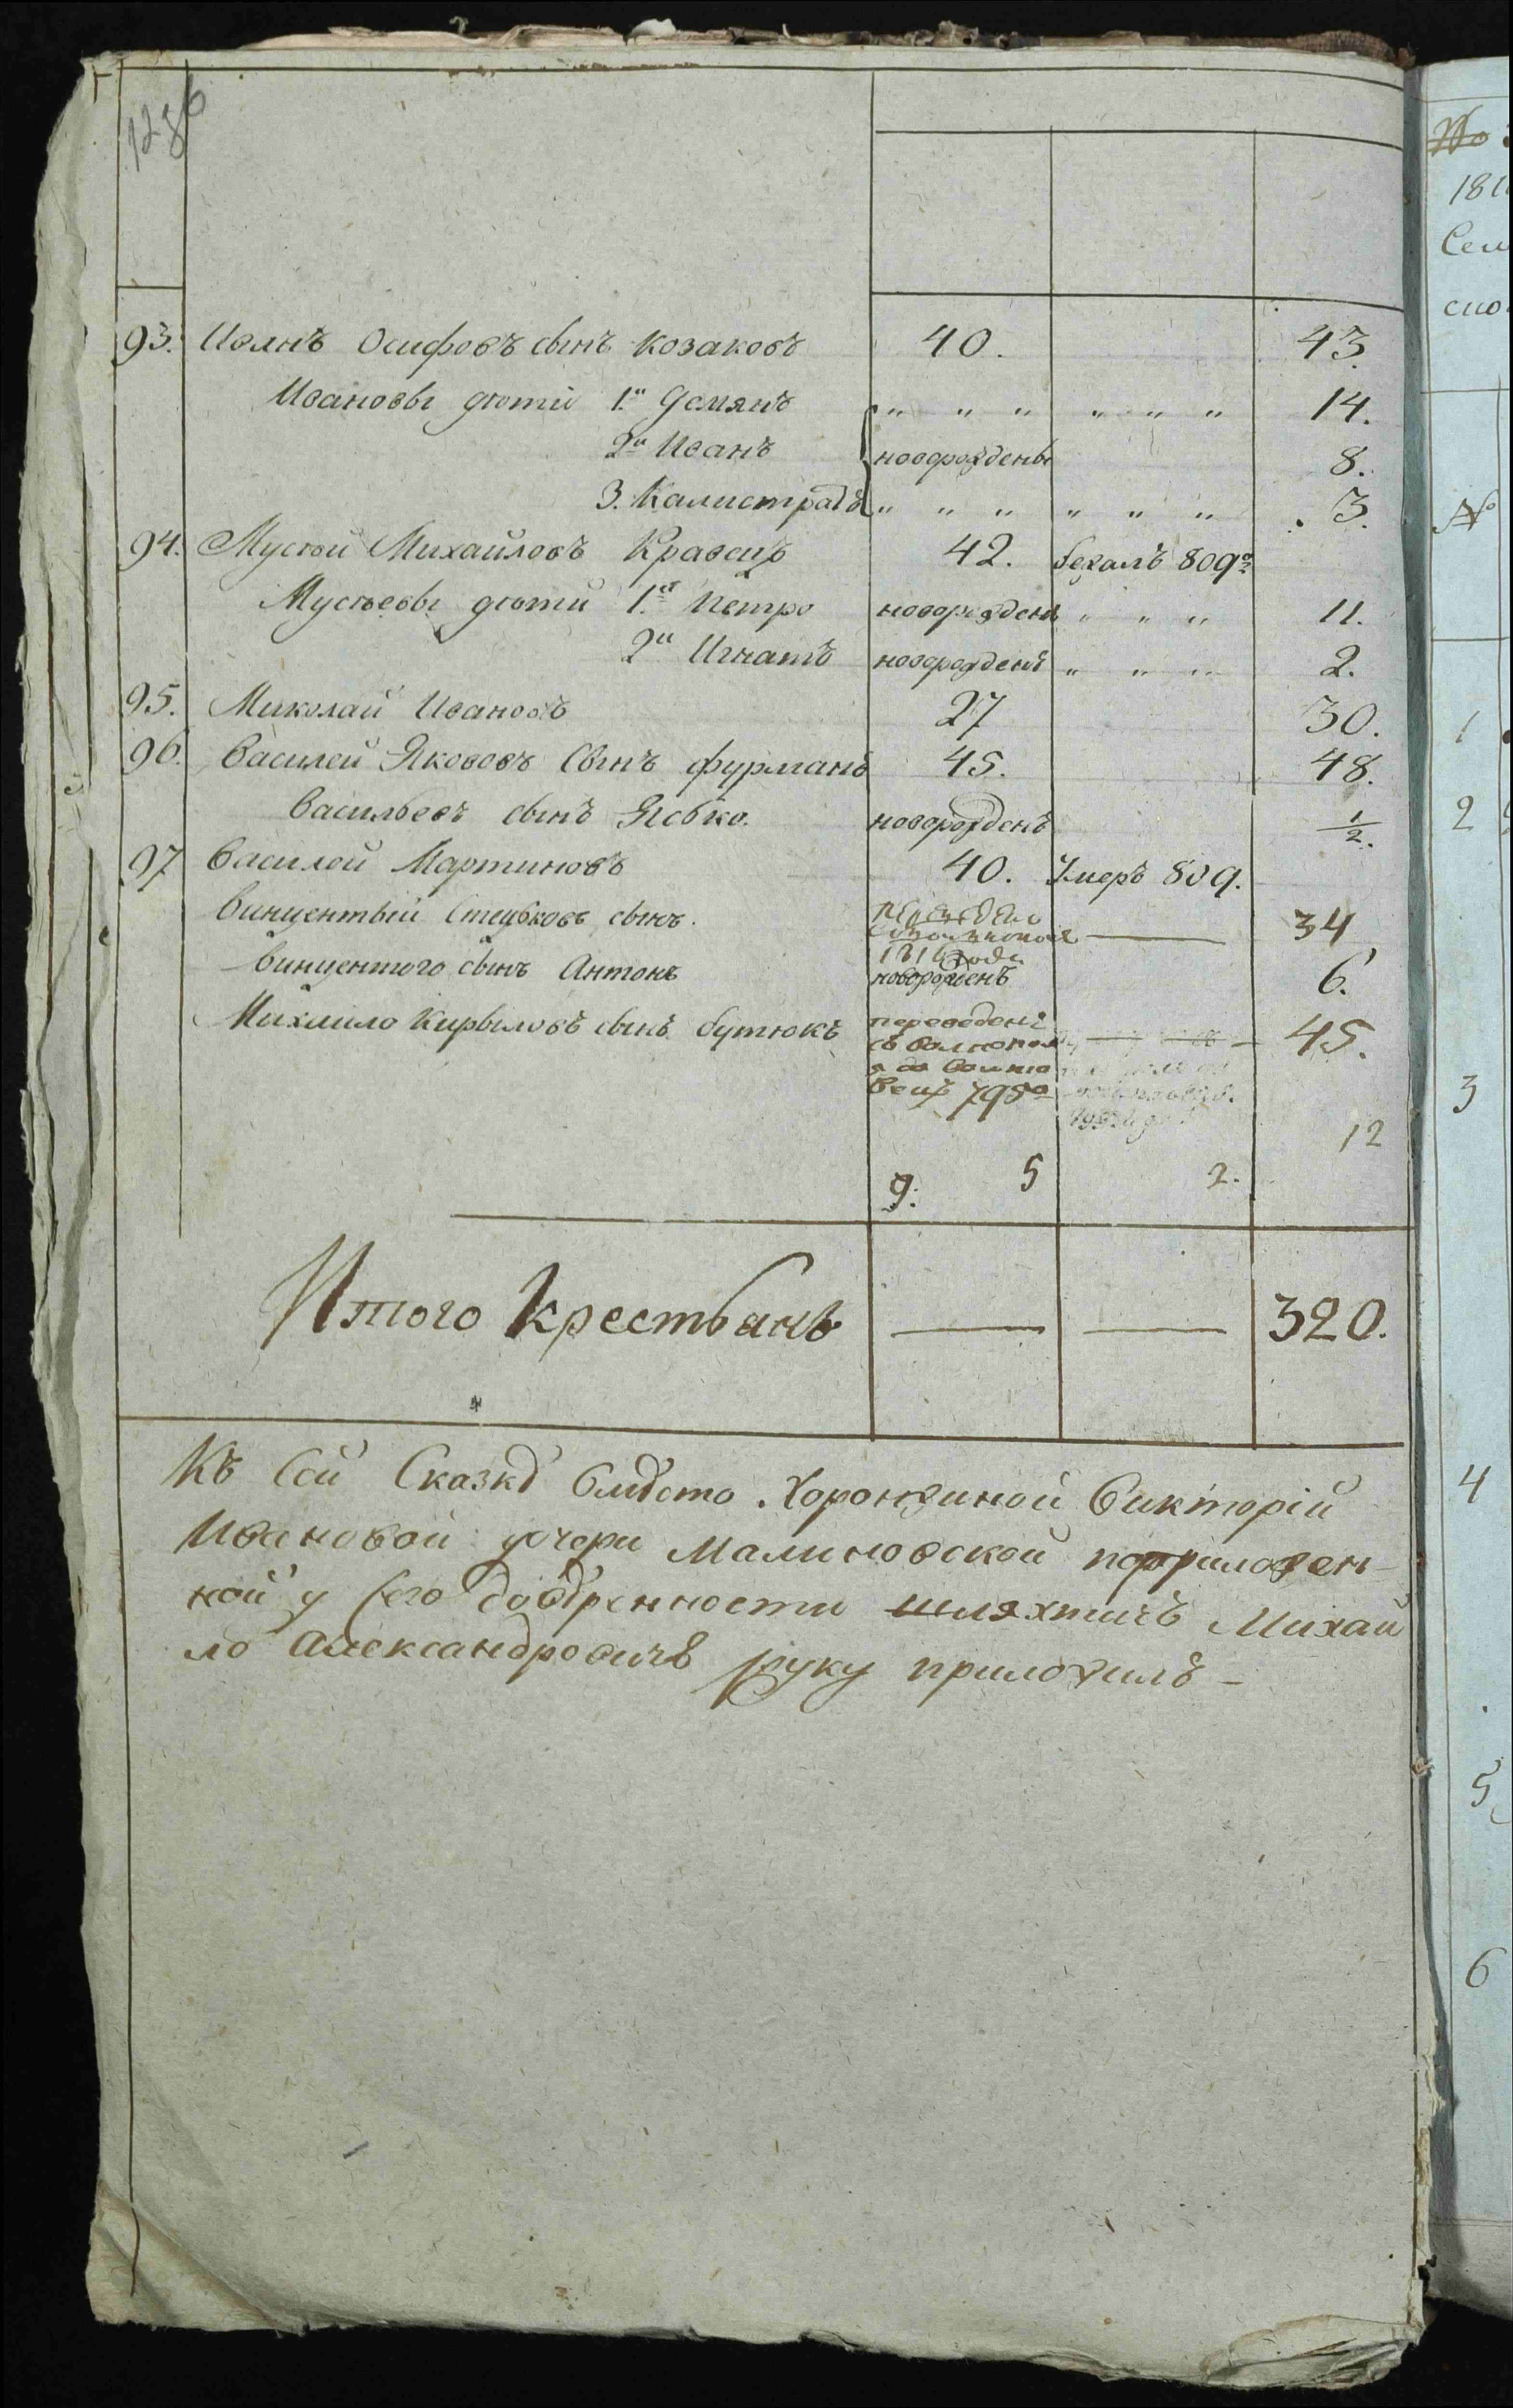 1286
93. Иванъ Осифовъ сынъ Козаковъ 40. 43
Ивановы дѣти 1.й Демянъ „ „ „ „ „ „ 14.
2й Иванъ новорождены 8.
3. Калистратъ „ „ „ „ „ „ 3.
94. Мусѣй Михайловъ Кравецъ 42. бежалъ 809го
Мусѣевы дѣти 1.й Петро новорожденъ „ „ „ 11.
2й Игнатъ новорожденъ „ „ „ 2.
95. Миколай Ивановъ 27 30.
96. Василей Якововъ Сынъ фурманъ 45. 48.
Васильевъ сынъ Ясько. новорожденъ 1/2.
97 Василей Мартиновъ 40. Умеръ 809.
Винцентый Стецковъ сынъ. 34
1816 года
Винцентого сынъ Антонъ новорожденъ 6.
Михайло Кирыловъ сынъ бутюкъ переведенъ 45.
795го
12
9. 5 2.
Итого Крестьянъ 320.
Къ Сей Сказкѣ Вмѣсто Хоронжиной Викторіи
Ивановой дочери Малиновской
ной у Сего довѣренности шляхтичъ Михай
ло Александровичъ руку приложилъ –
181
Сел
1
2
3
4
5
6